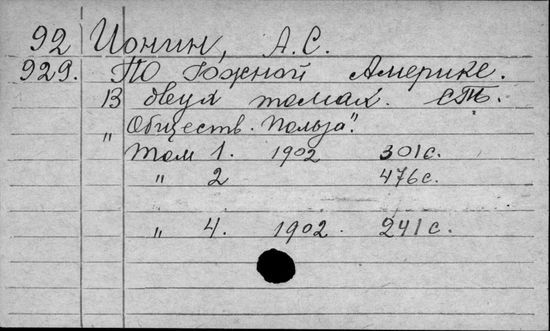 92 Ионин, А.С.
929. По Южной Америке.
В двух томах. СПБ.
„Обществ. Польза".
Том 1. 1902 301 с.
" 2 476 с.
" 4. 1902. 241 с.